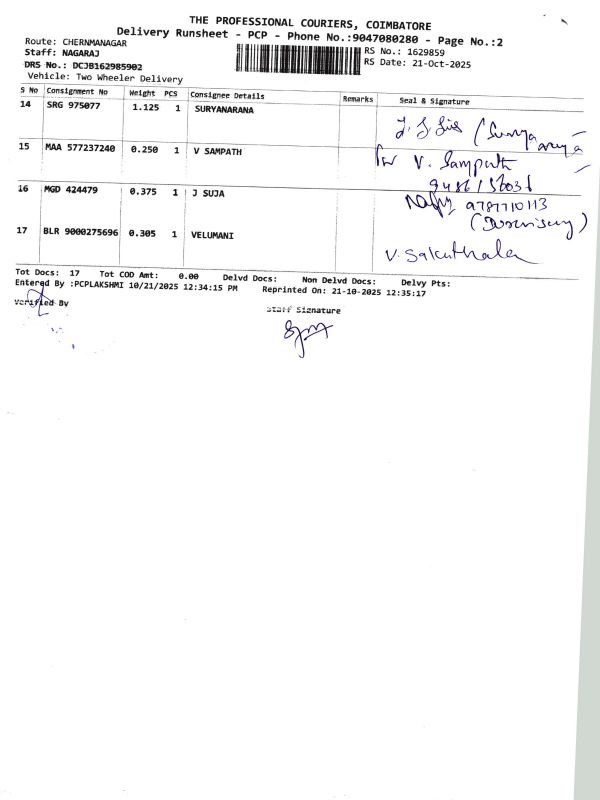 THE PROFESSIONAL COURIERS, COIMBATORE
Delivery Runsheet - PCP - Phone No.:9047080280 - Page No.:2
Route: CHERNMANAGAR
Staff: NAGARAJ
RS No.: 1629859
DRS No.: DCJB162985902
RS Date: 21-Oct-2025
Vehicle: Two Wheeler Delivery
S No Consignment No Weight PCS Consignee Details Remarks Seal & Signature
14 SRG 975077 1.125 1 SURYANARANA
15 MAA 577237240 0.250 1 V SAMPATH V. Sampath
16 MGD 424479 0.375 1 J SUJA 9787710113
17 BLR 9000275696 0.305 1 VELUMANI V. Sakuthala
Tot Docs: 17 Tot COD Amt: 0.00 Delvd Docs: Non Delvd Docs: Delvy Pts:
Entered By :PCPLAKSHMI 10/21/2025 12:34:15 PM Reprinted On: 21-10-2025 12:35:17
Verified By
Staff Signature